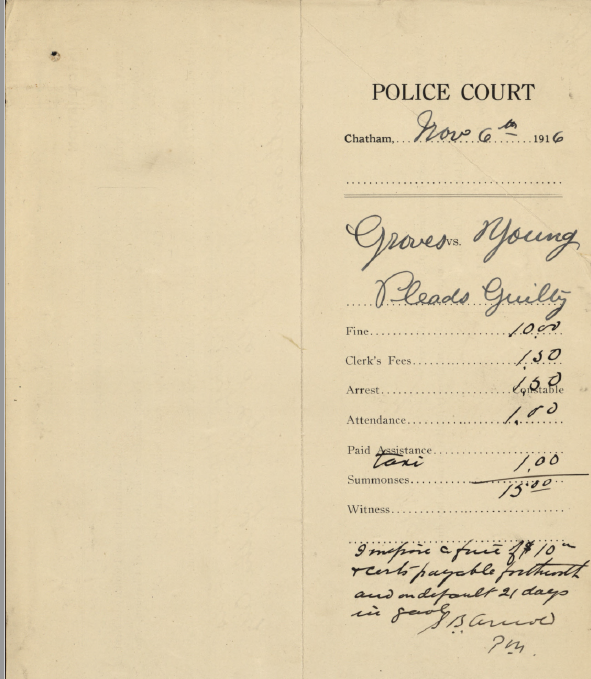 POLICE COURT
Chatham, Nov 6th 1916
Groves vs. Young
Pleads Guilty
Fine 10.00
Clerk's Fees 1.50
Arrest 1.50 Constable
Attendance 1.00
Paid Assistance
taxi 1.00
Summonses 15.00
Witness
I impose a fine of $10 00
& costs payable forthwith
and on default 21 days
in gaol
S B Arnold
P.M.